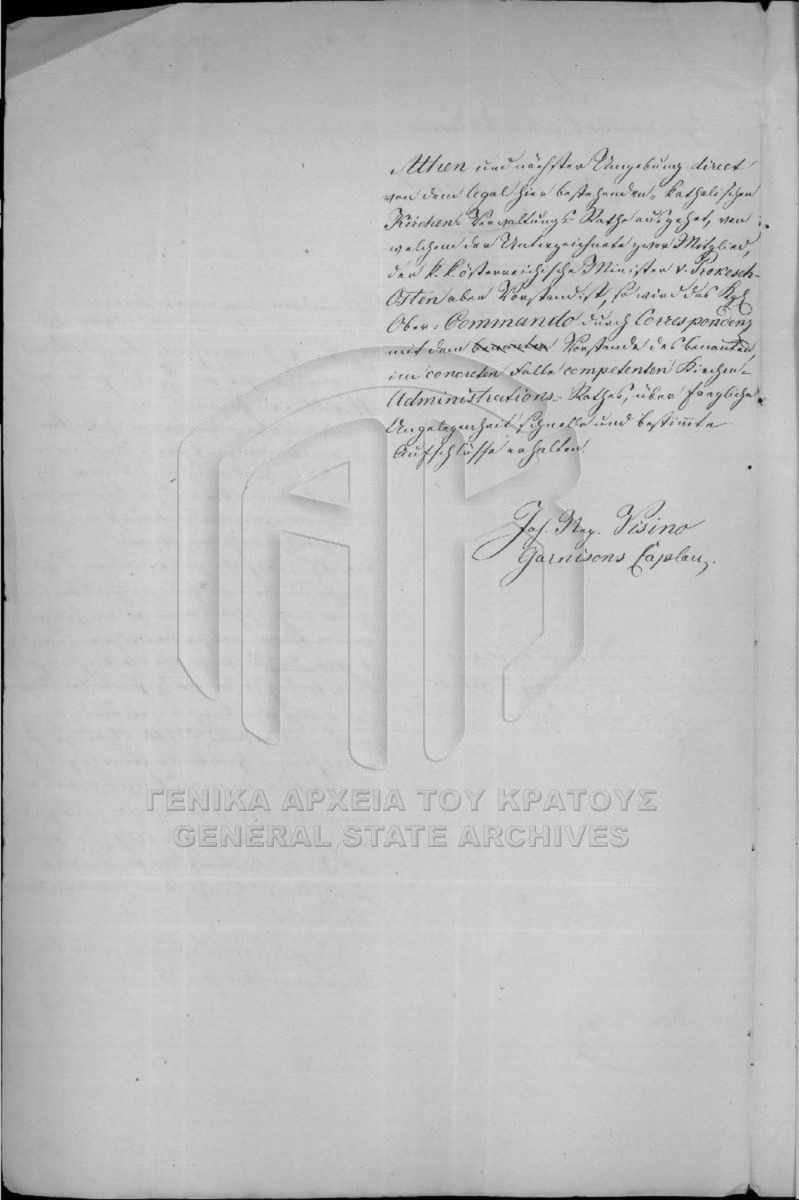 Athen und nächster Umgebung direct
von dem legal hier bestehenden katholischen
Kirchen-Verwaltungs-Rathe ausgehet, von
welchem der Unterzeichnete zwar Mitglied,
der k. k. österreichische Minister v. Prokesch-
Osten aber Vorstand ist, so wird das Kgl
Ober-Commando durch Correspondenz
mit dem Vorstande des benannten,
im concreten Falle competenten Kirchen-
Administrations-Rathes, über fragliche
Angelegenheit schnelle und bestimmte
Aufschlüsse erhalten.
Joh. Nep. Visino
Garnisons Caplan.
ΓΕΝΙΚΑ ΑΡΧΕΙΑ ΤΟΥ ΚΡΑΤΟΥΣ
GENERAL STATE ARCHIVES